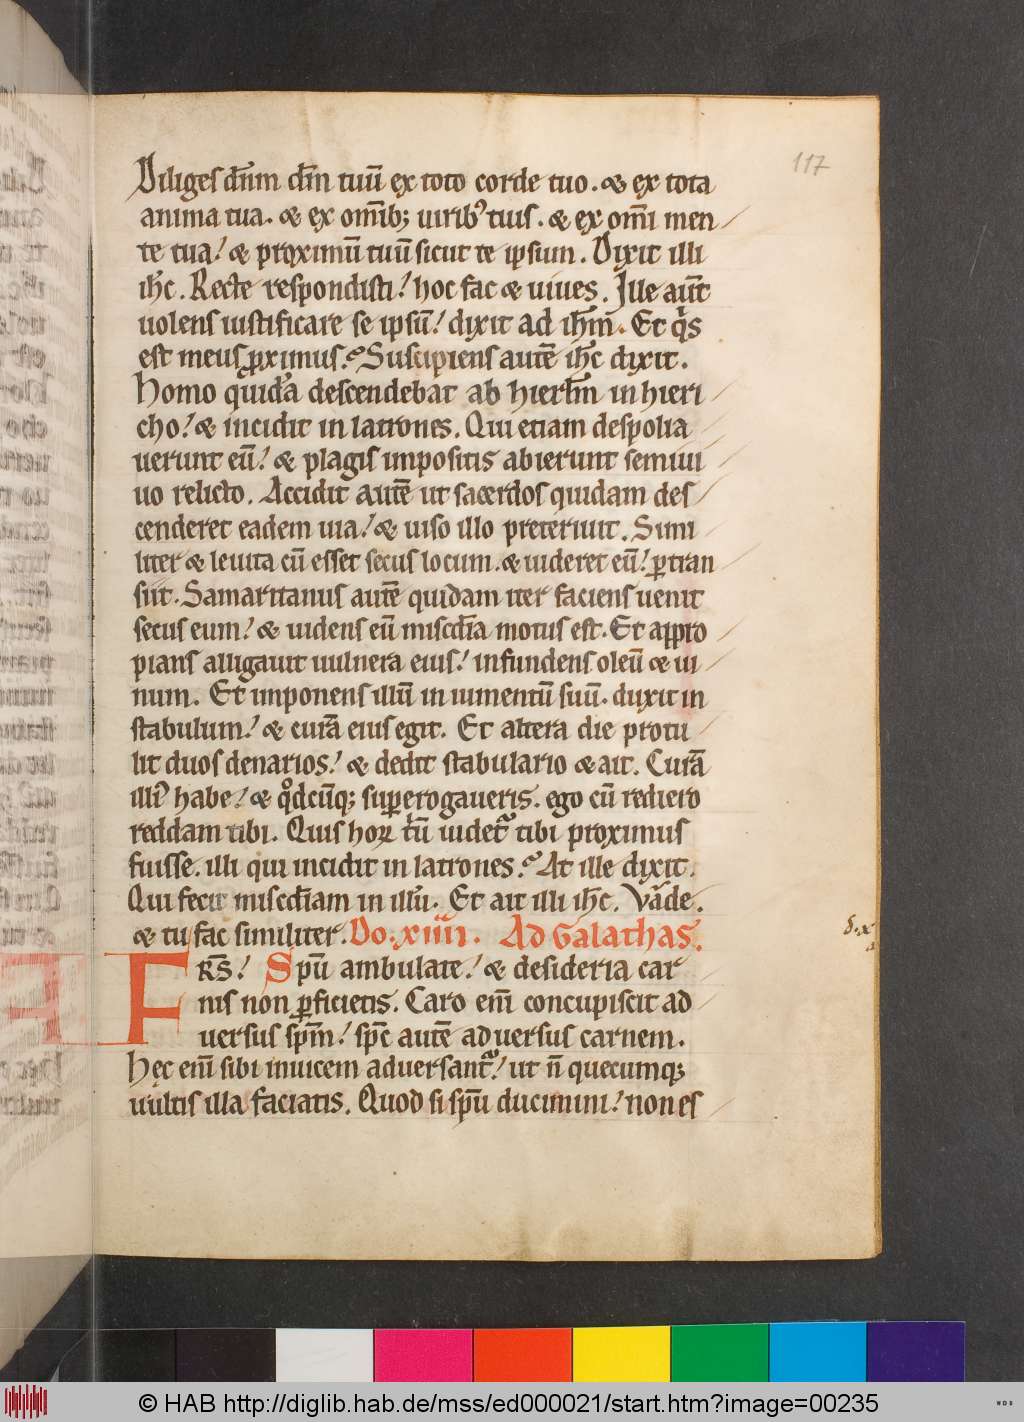 117
Diliges dn̄m dm̄ tuū ex toto corde tuo. & ex tota
anima tua. & ex om̄ib; uirib᷒ tuis. & ex om̄i men
te tua! & proximū tuū sicut te ipsum. Dixit illi
ih̄c. Recte respondisti! hoc fac & uiues. Ille aūt
uolens iustificare se ipsū! dixit ad ih̄m. Et qͥs
est meus ꝓximus? Suscipiens autē ih̄c dixit.
Homo quidā descendebat ab hierl̄m in hieri
cho! & incidit in latrones. Qui etiam despolia
uerunt eū! & plagis impositis abierunt semiui
uo relicto. Accidit autē ut sacerdos quidam des
cenderet eadem uia! & uiso illo preteriuit. Simi
liter & leuita cū esset secus locum. & uideret eū! ꝑtran
siit. Samaritanus autē quidam iter faciens uenit
secus eum! & uidens eū misc̄dia motus est. Et appro
pians alligauit uulnera eius! infundens oleū & ui
num. Et imponens illū in iumentū suū. duxit in
stabulum! & curā eius egit. Et altera die protu
lit duos denarios! & dedit stabulario & ait. Curā
illi᷒ habe! & qͦdcūq; suꝑerogaueris. ego cū rediero
reddam tibi. Quis hoꝝ triū uidet᷑ tibi proximus
fuisse. illi qui incidit in latrones? At ille dixit.
Qui fecit misc̄diam in illū. Et ait illi ih̄c. Vade.
& tu fac similiter. Do. xiiii. Ad Galathas.
δ.x
FRS̄! Spū ambulate! & desideria car
nis non ꝑficietis. Caro eni̅ concupiscit ad
uersus sp̄m! sp̄c autē aduersus carnem.
Hęc eni̅ sibi inuicem aduersant᷑! ut n̄ quecumq;
uultis illa faciatis. Quod si spū ducimini! non es
© HAB http://diglib.hab.de/mss/ed000021/start.htm?image=00235